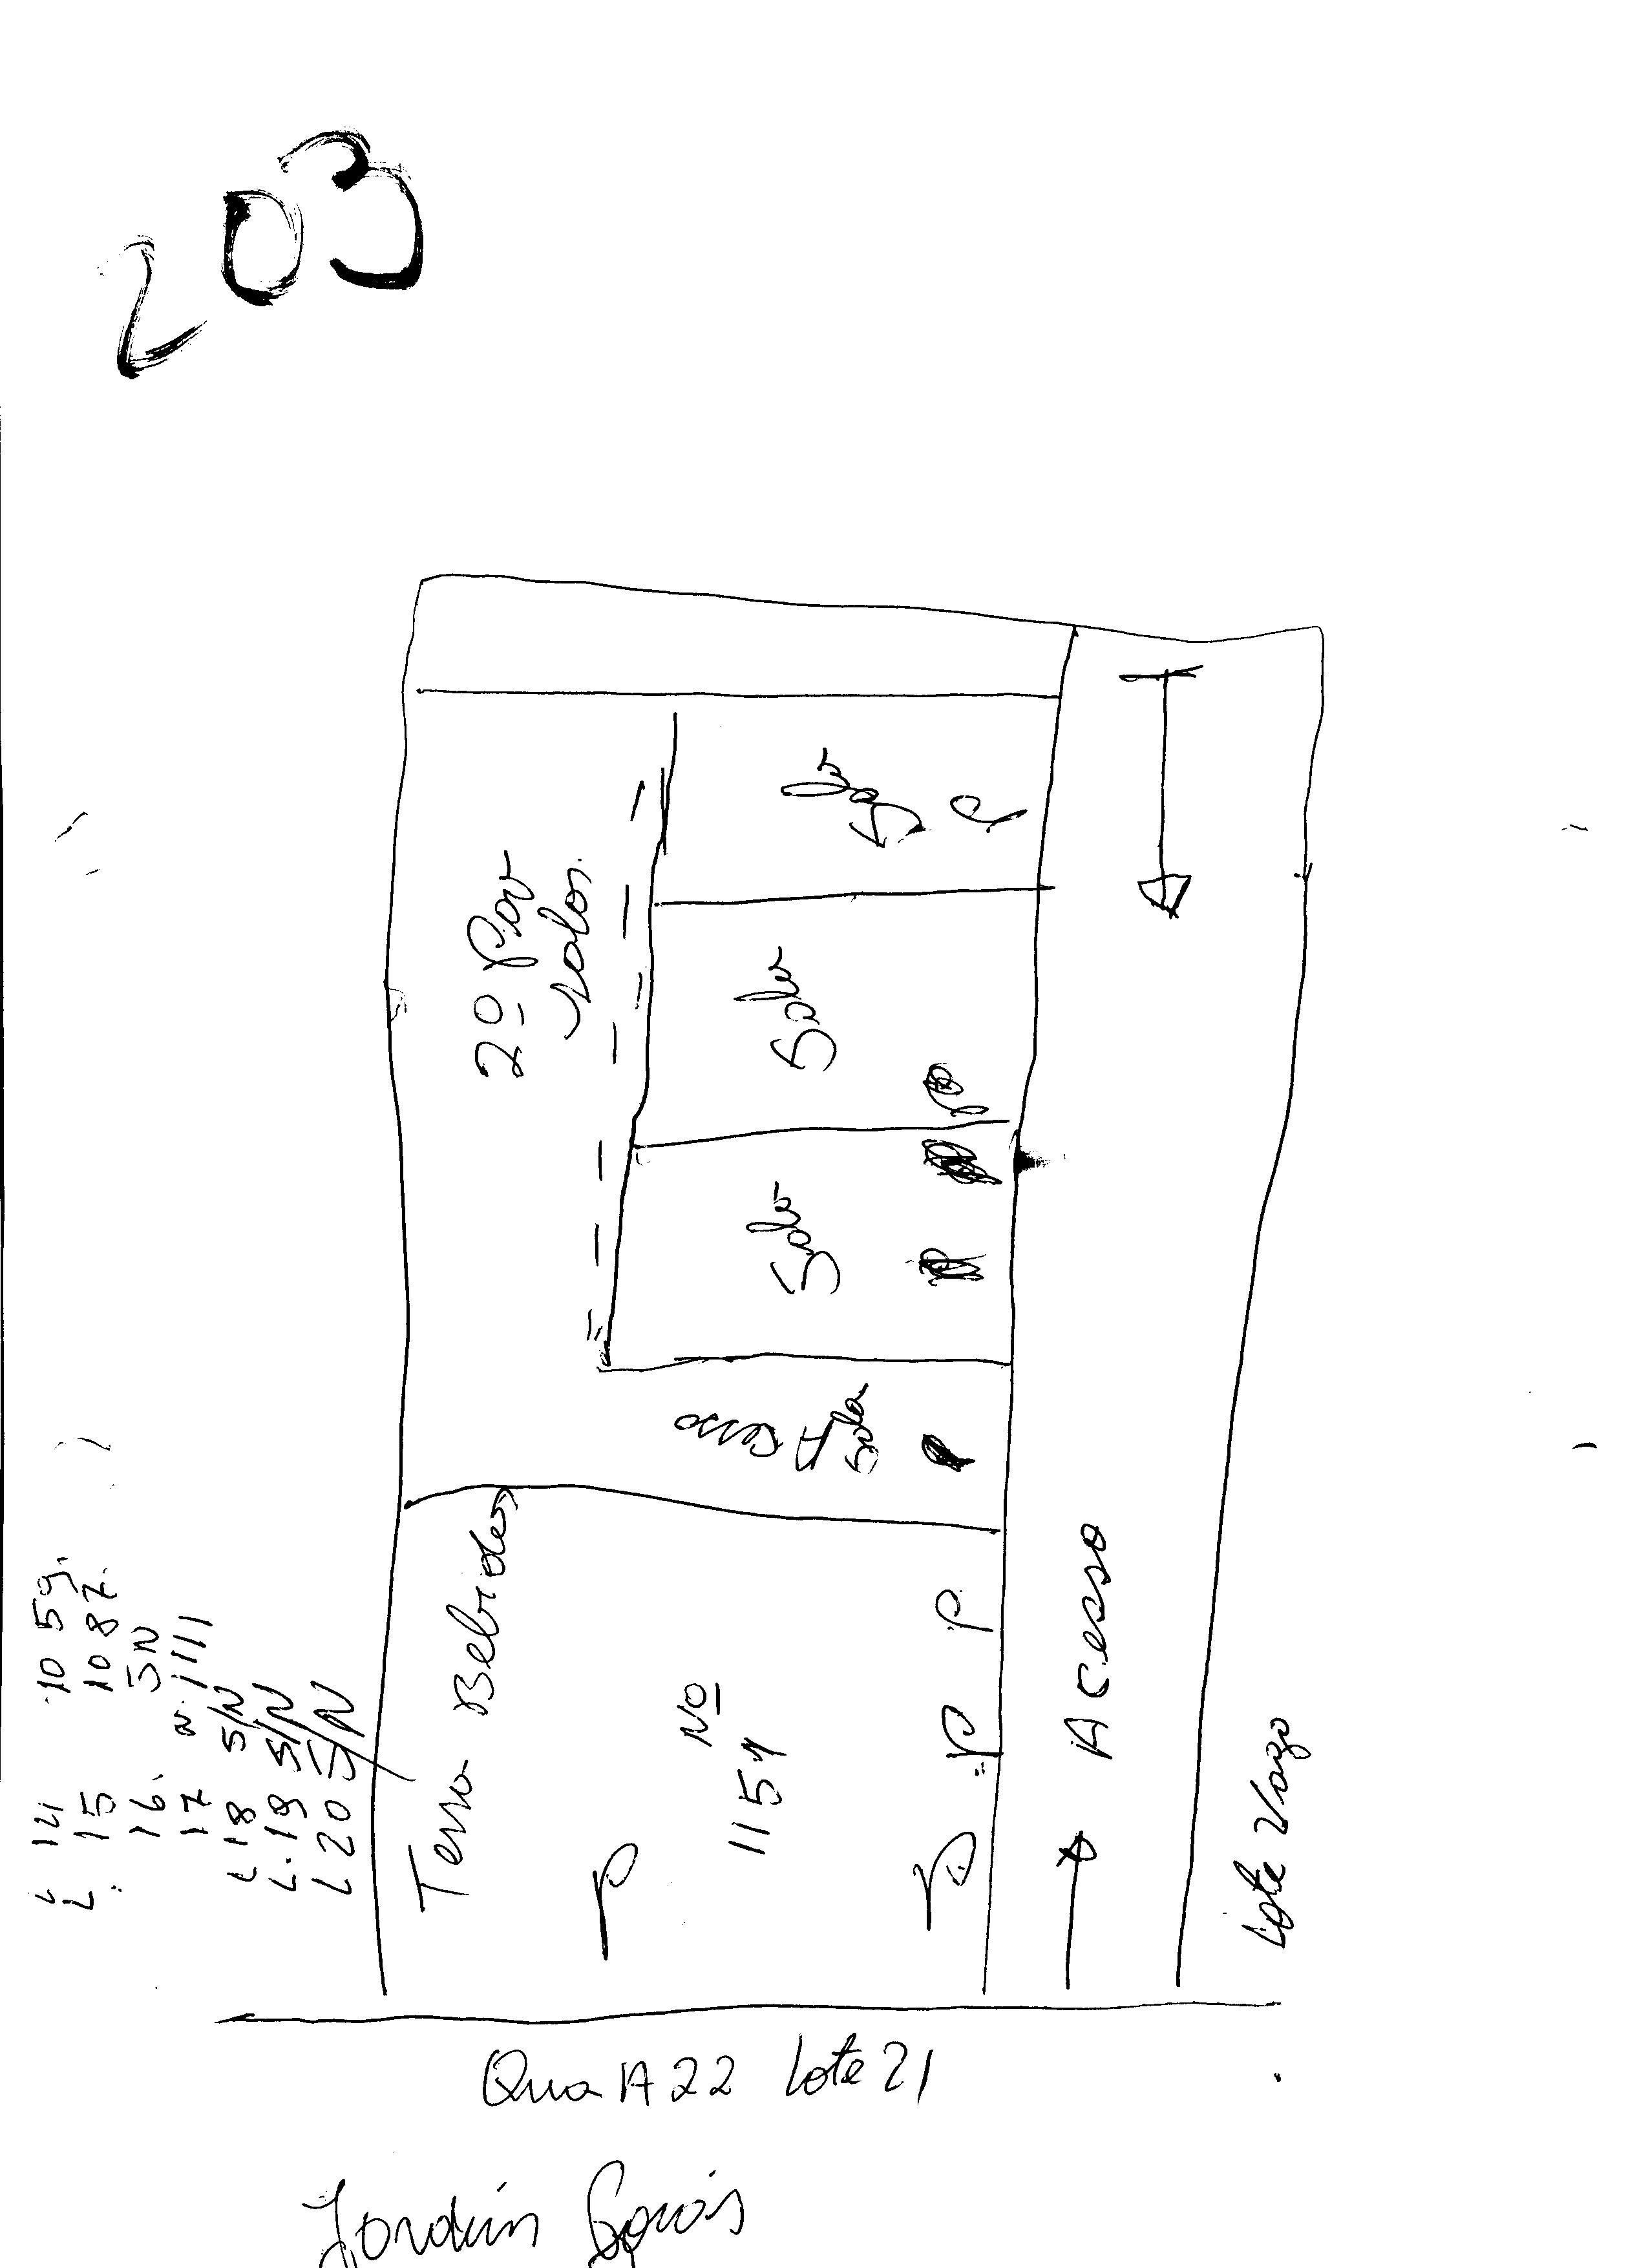 203
L 14 1059.
L. 15 1087.
16. SN
17 n. 1111
L 18 S/N
L. 19 S/N
L 20 S/N
2º Pav
salas.
Sala
P
Sala
Sala
Sala
Terra Bebidas
Nº
1157
P
P
P
P
Acesso
Lote Vago
Qua A 22 Lote 21
Jordim Goiás